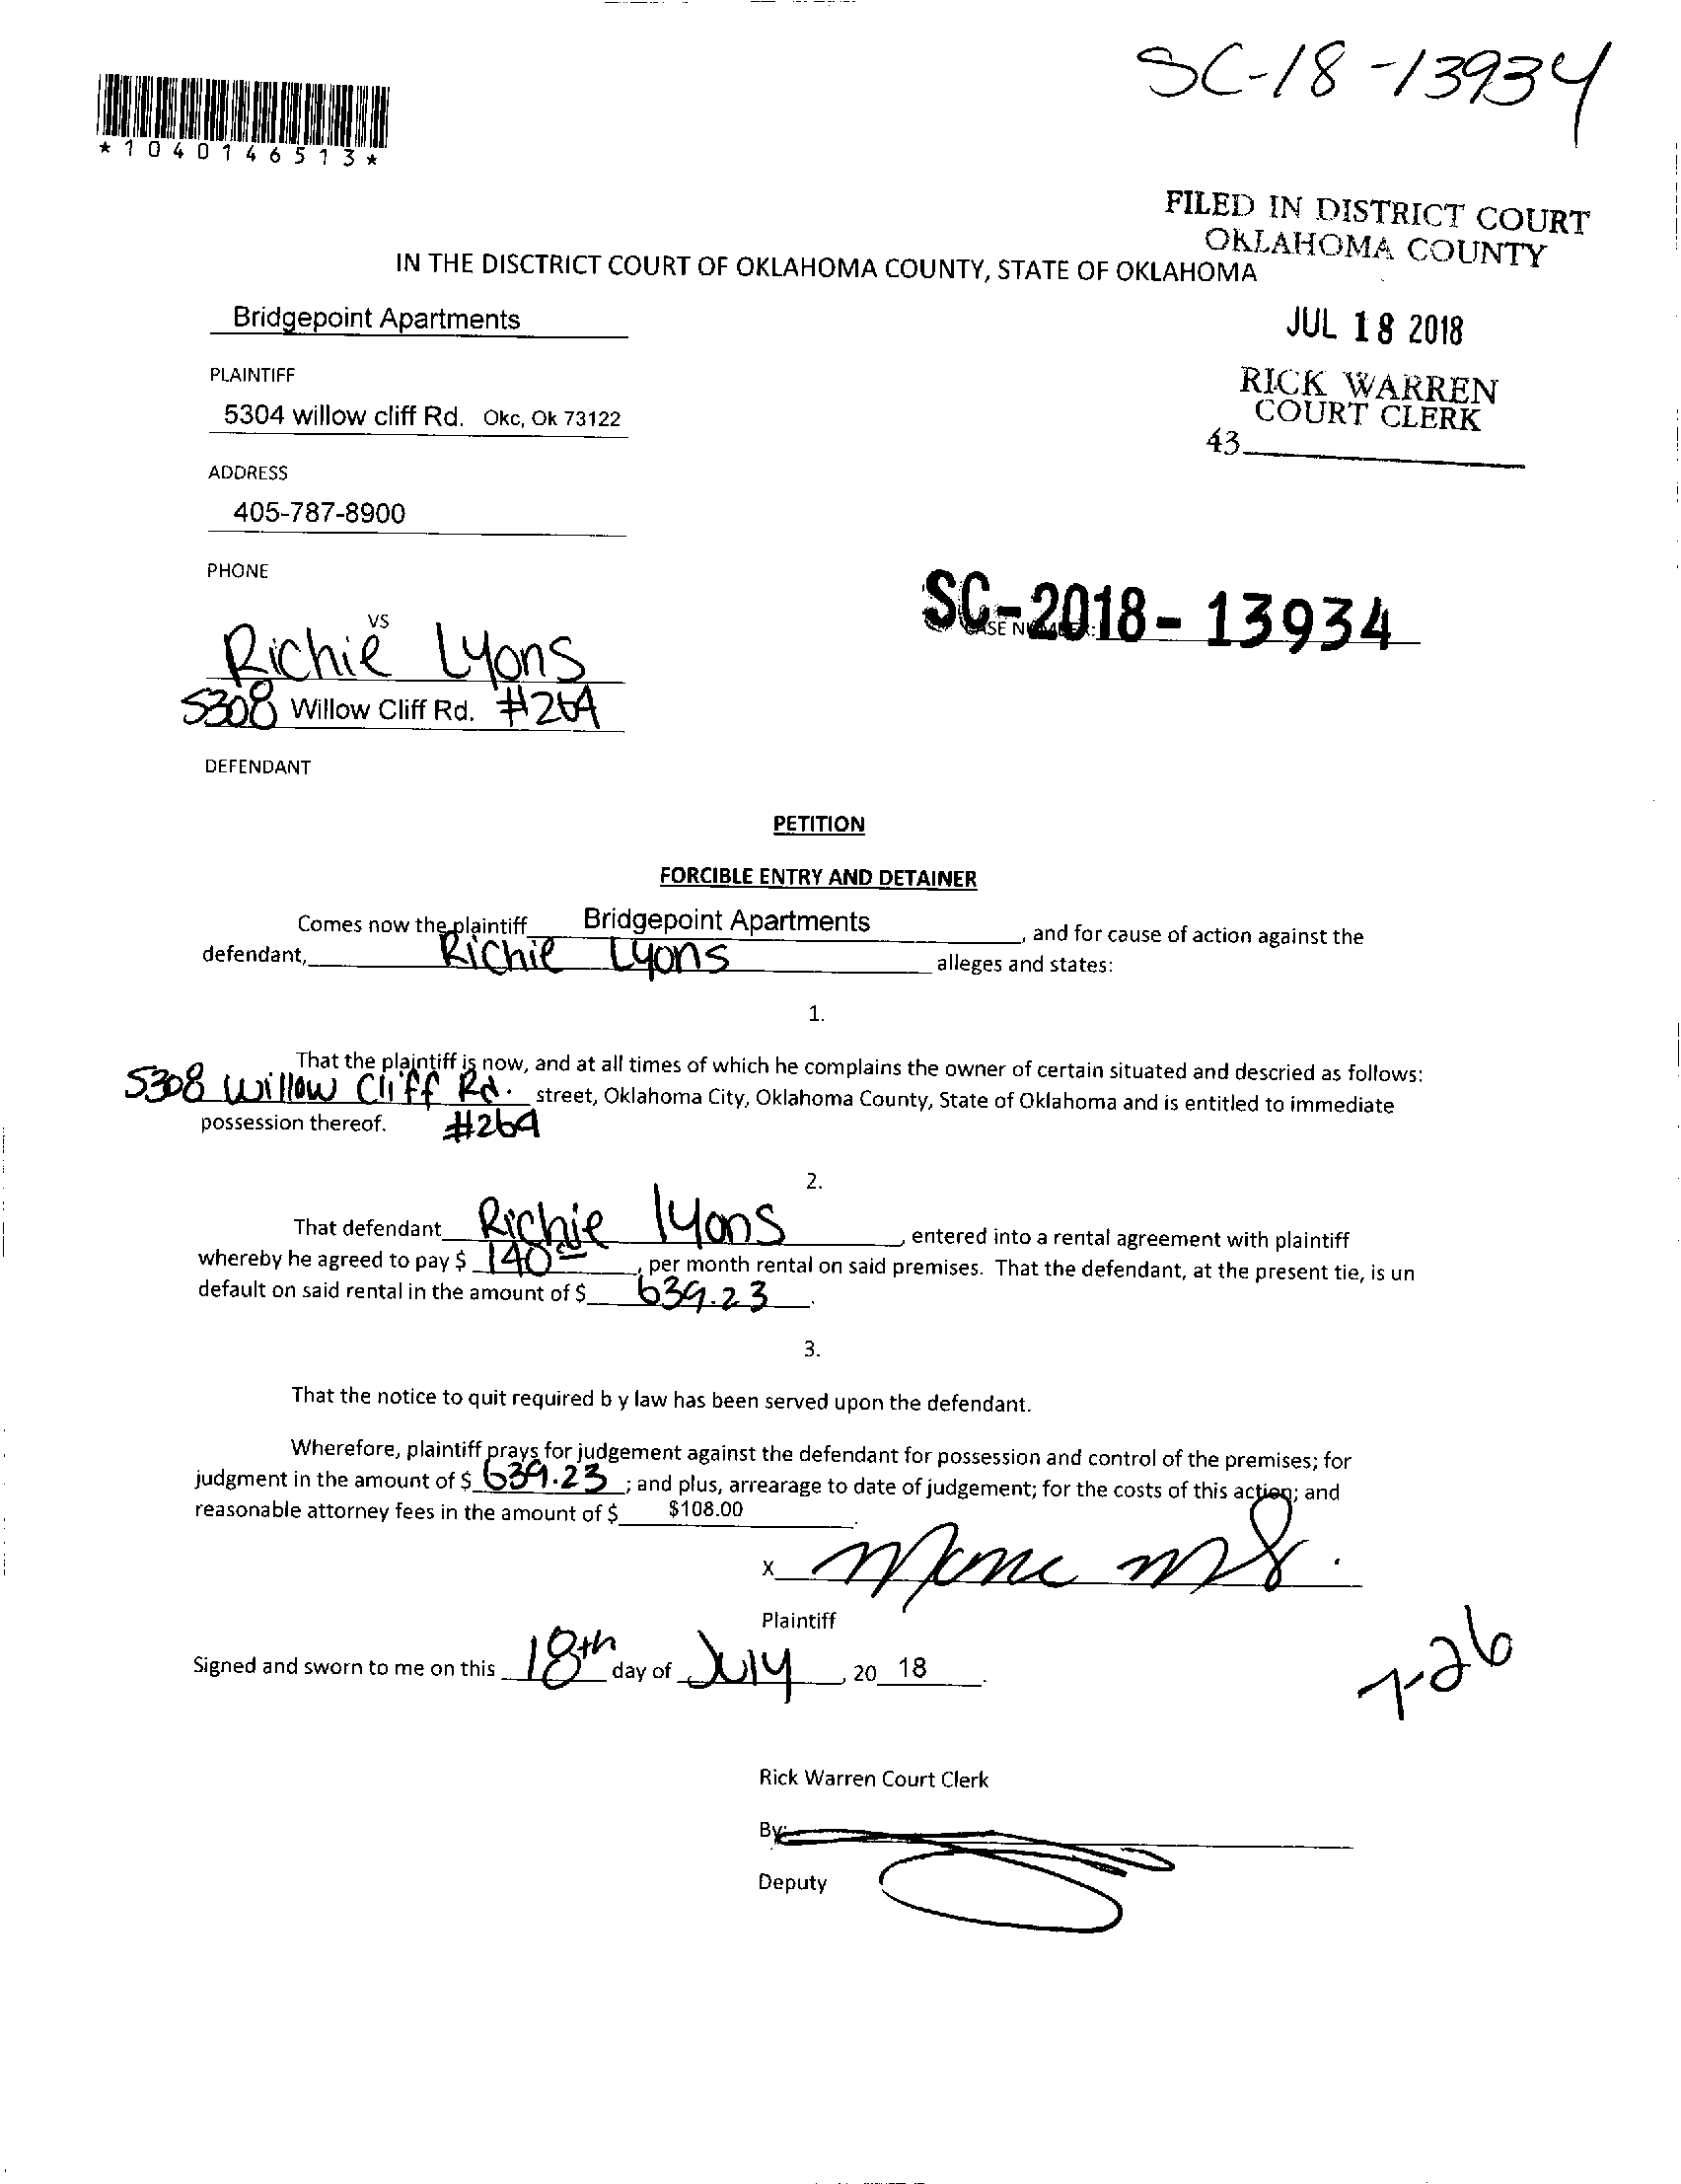 SC-18-13934
*1040146513*
FILED IN DISTRICT COURT
OKLAHOMA COUNTY
IN THE DISCTRICT COURT OF OKLAHOMA COUNTY, STATE OF OKLAHOMA
Bridgepoint Apartments
JUL 18 2018
PLAINTIFF
RICK WARREN
COURT CLERK
5304 willow cliff Rd. Okc, Ok 73122
43
ADDRESS
405-787-8900
PHONE
SC-2018-13934
CASE NUMBER:
VS
Richie Lyons
5308 Willow Cliff Rd. #269
DEFENDANT
PETITION
FORCIBLE ENTRY AND DETAINER
Comes now the plaintiff Bridgepoint Apartments, and for cause of action against the
defendant, Richie Lyons alleges and states:
1.
That the plaintiff is now, and at all times of which he complains the owner of certain situated and descried as follows:
5308 Willow Cliff Rd. street, Oklahoma City, Oklahoma County, State of Oklahoma and is entitled to immediate
possession thereof. #269
2.
That defendant Richie Lyons, entered into a rental agreement with plaintiff
whereby he agreed to pay $ 140, per month rental on said premises. That the defendant, at the present tie, is un
default on said rental in the amount of $ 639.23.
3.
That the notice to quit required b y law has been served upon the defendant.
Wherefore, plaintiff prays for judgement against the defendant for possession and control of the premises; for
judgment in the amount of $ 639.23; and plus, arrearage to date of judgement; for the costs of this action; and
reasonable attorney fees in the amount of $ $108.00.
X
Plaintiff
Signed and sworn to me on this 18th day of July, 20 18.
7-26
Rick Warren Court Clerk
By:
Deputy